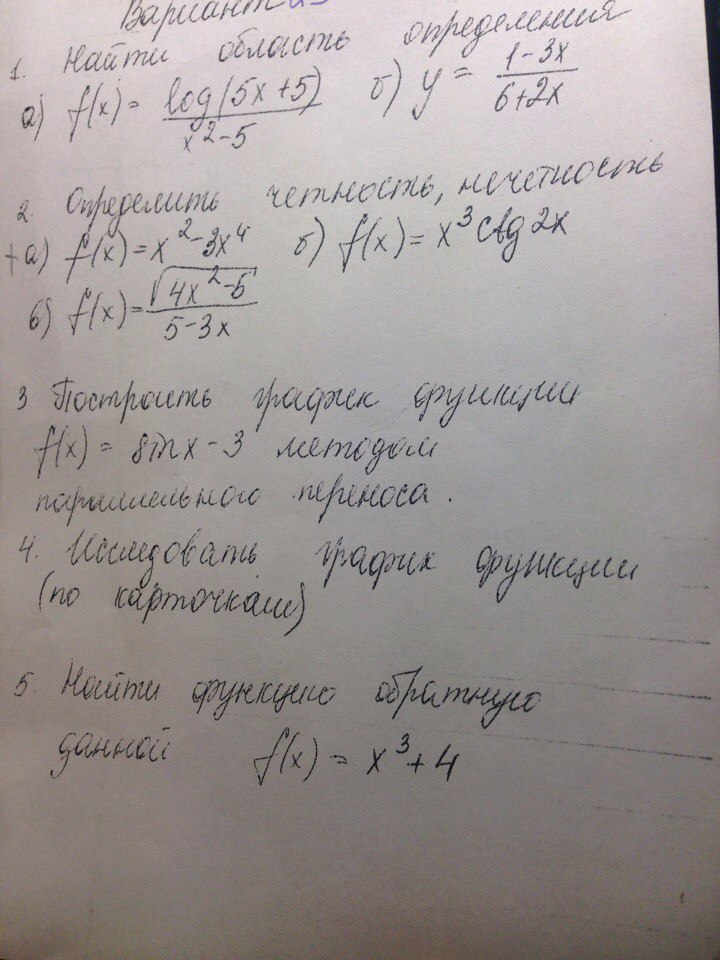 Вариант
1. Найти область определения
а) f(x) = log(5x+5) / x²-5 б) y = 1-3x / 6+2x
2. Определить четность, нечетность
+а) f(x) = x²-3x⁴ б) f(x) = x³ctg2x
в) f(x) = √4x²-5 / 5-3x
3 Построить график функции
f(x) = sinx-3 методом
параллельного переноса.
4. Исследовать график функции
(по карточкам)
5. Найти функцию обратную
данной f(x) = x³+4